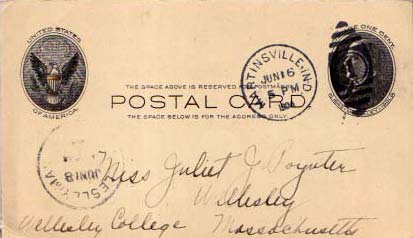 UNITED STATES
OF AMERICA
THE SPACE ABOVE IS RESERVED FOR POSTMARK
POSTAL CARD
THE SPACE BELOW IS FOR THE ADDRESS ONLY.
MARTINSVILLE, IND.
JUN 16
5 PM
ONE CENT.
JUN 18
Miss Juliet J. Poynter
Wellesley
Wellesley College Massachusetts